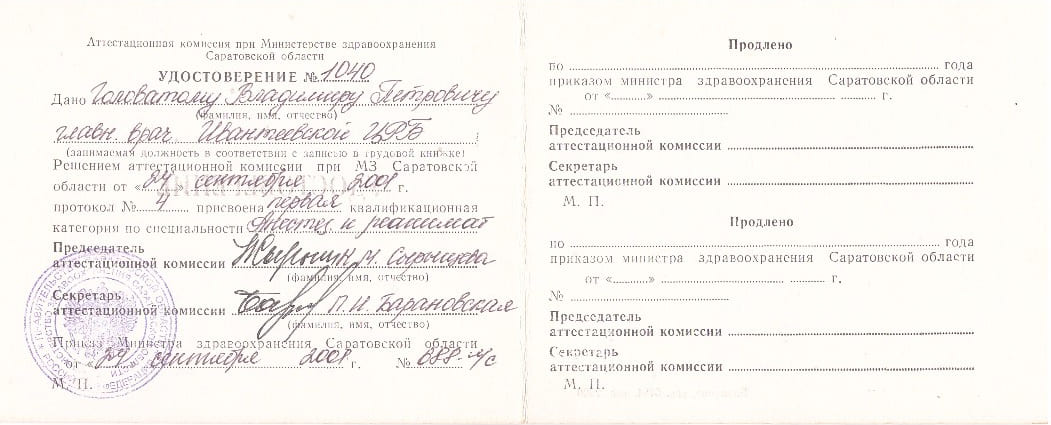 Аттестационная комиссия при Министерстве здравоохранения
Саратовской области
УДОСТОВЕРЕНИЕ № 1040
Дано Головатому Владимиру Петровичу
(фамилия, имя, отчество)
главн. врач. Ивантеевской ЦРБ ;
(занимаемая должность в соответствии с записью в трудовой книжке)
Решением аттестационной комиссии при МЗ Саратовской
области от «24» сентября 2008 г.
протокол № 4 присвоена первая квалификационная
категория по специальности Анестез. и реанимат
Председатель
аттестационной комиссии М. Сырыщева
(фамилия, имя, отчество)
Секретарь
аттестационной комиссии П.И. Барановская
(фамилия, имя, отчество)
Приказ Министра здравоохранения Саратовской области
от «24 сентября 2008 г. № 888-л/с
М. П.
Продлено
по года
приказом министра здравоохранения Саратовской области
от «...........» г.
№
Председатель
аттестационной комиссии
Секретарь
аттестационной комиссии
М. П.
Продлено
по года
приказом министра здравоохранения Саратовской области
от «...........» г.
№
Председатель
аттестационной комиссии
Секретарь
аттестационной комиссии
М. П.